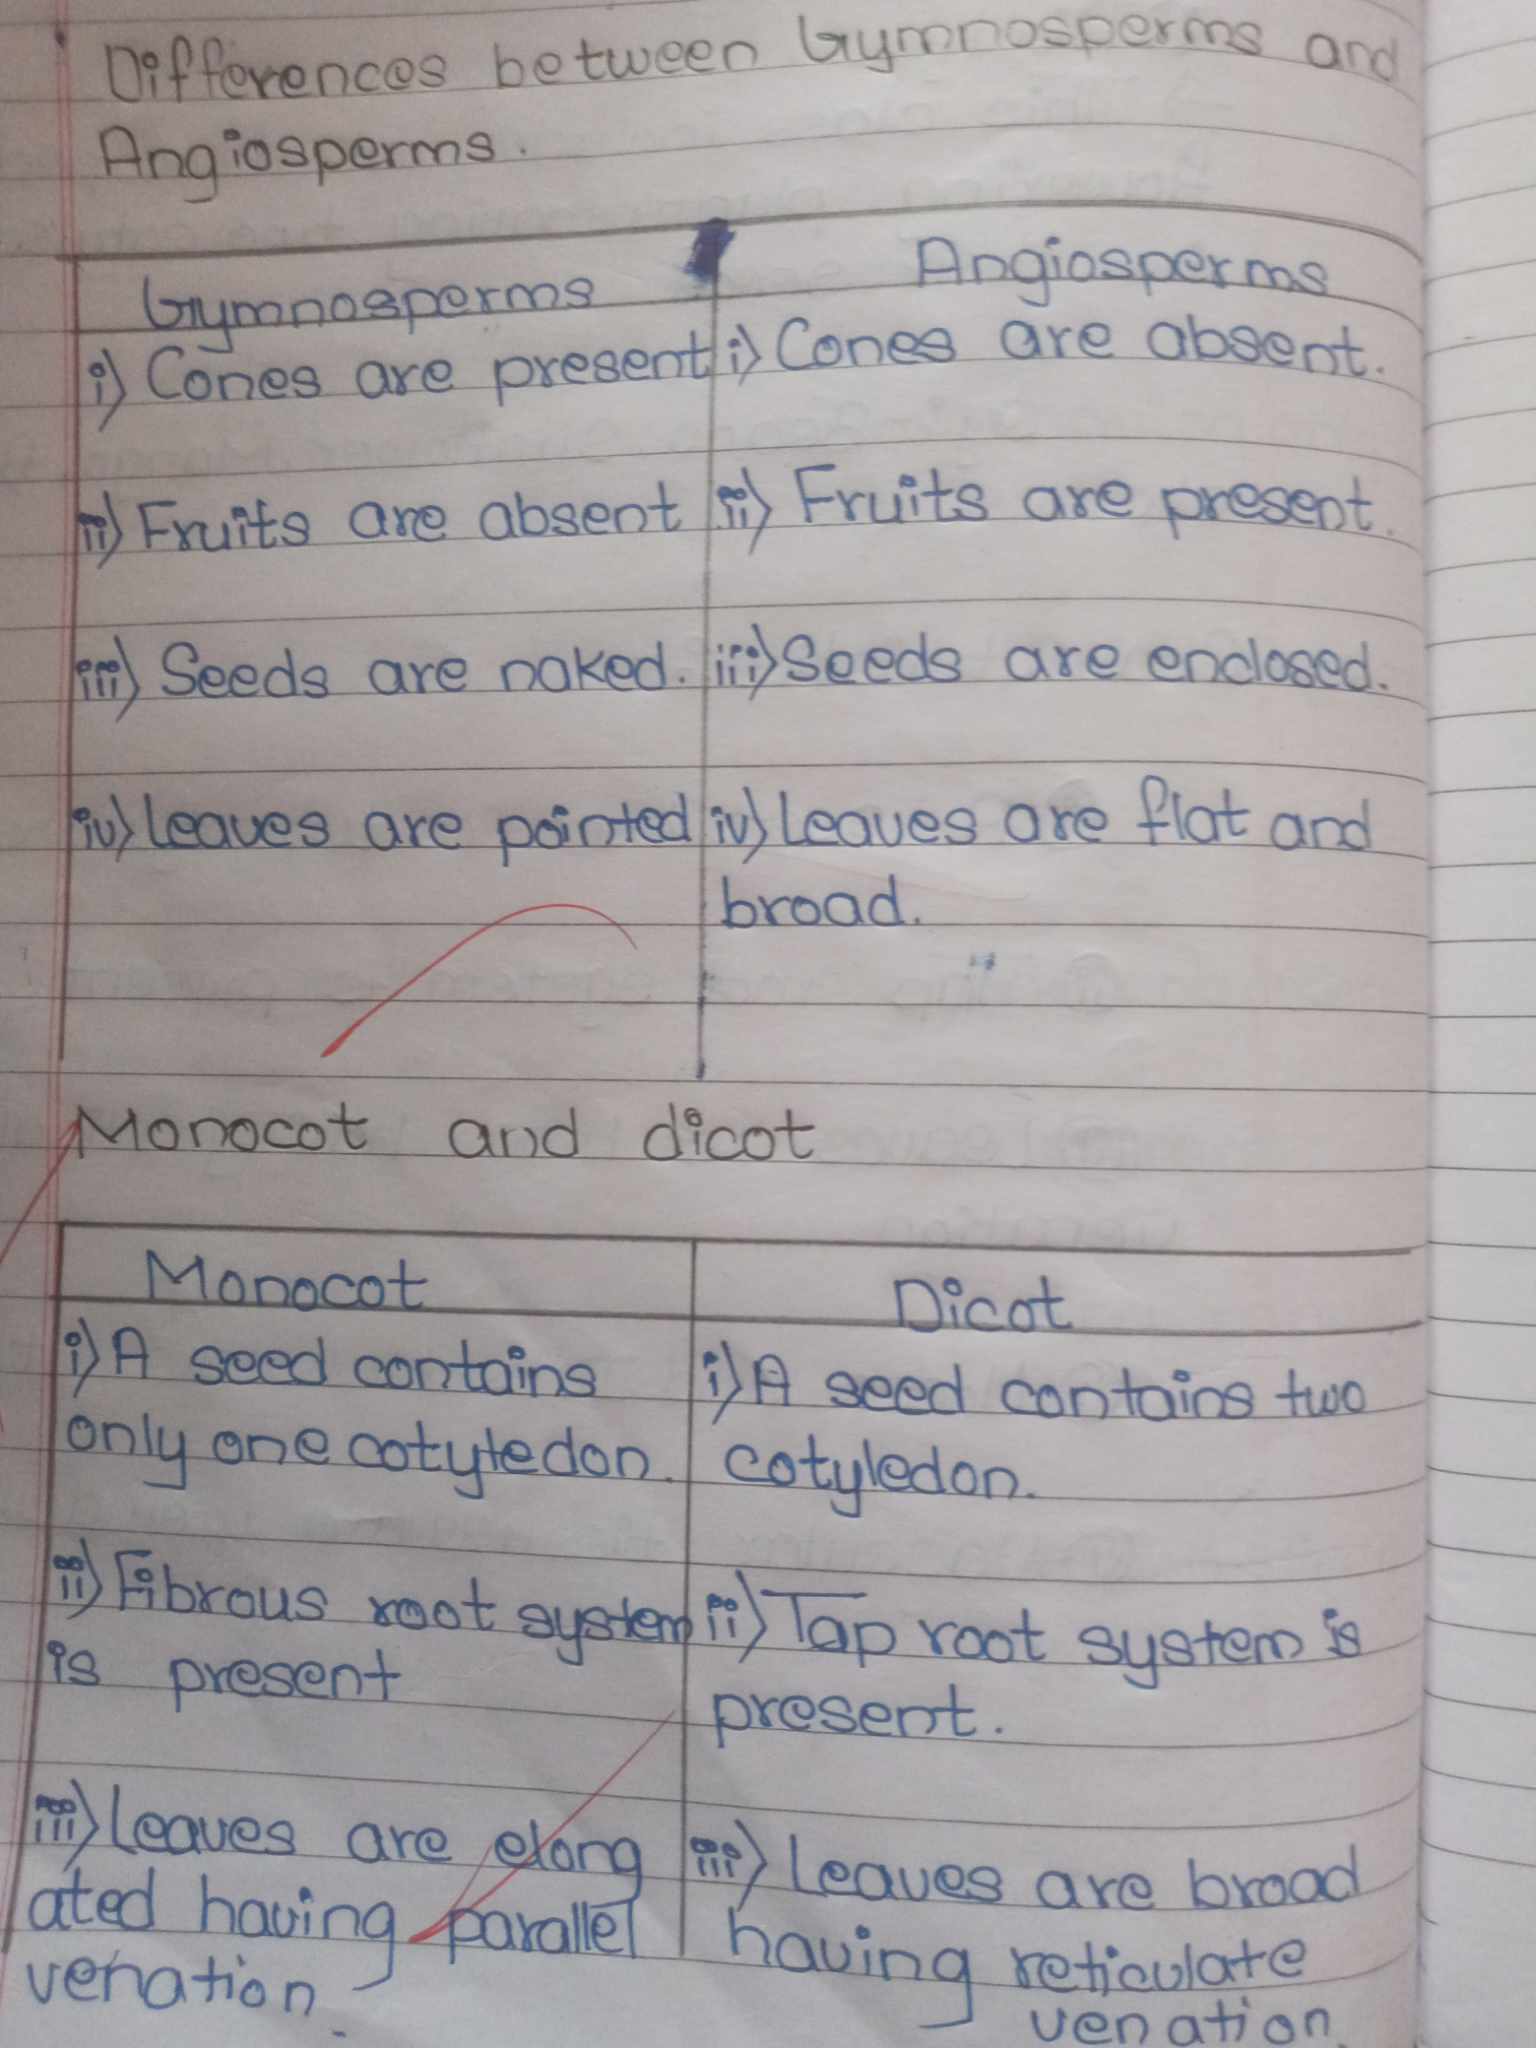 Differences between Gymnosperms and
Angiosperms.
Gymnosperms
Angiosperms
i) Cones are present
i) Cones are absent.
ii) Fruits are absent
ii) Fruits are present.
iii) Seeds are naked.
iii) Seeds are enclosed.
iv) Leaves are pointed
iv) Leaves are flat and
broad.
Monocot and dicot
Monocot
Dicot
i) A seed contains
only one cotyledon.
i) A seed contains two
cotyledon.
ii) Fibrous root system
is present
ii) Tap root system is
present.
iii) Leaves are elong
ated having parallel
venation.
iii) Leaves are broad
having reticulate
venation.